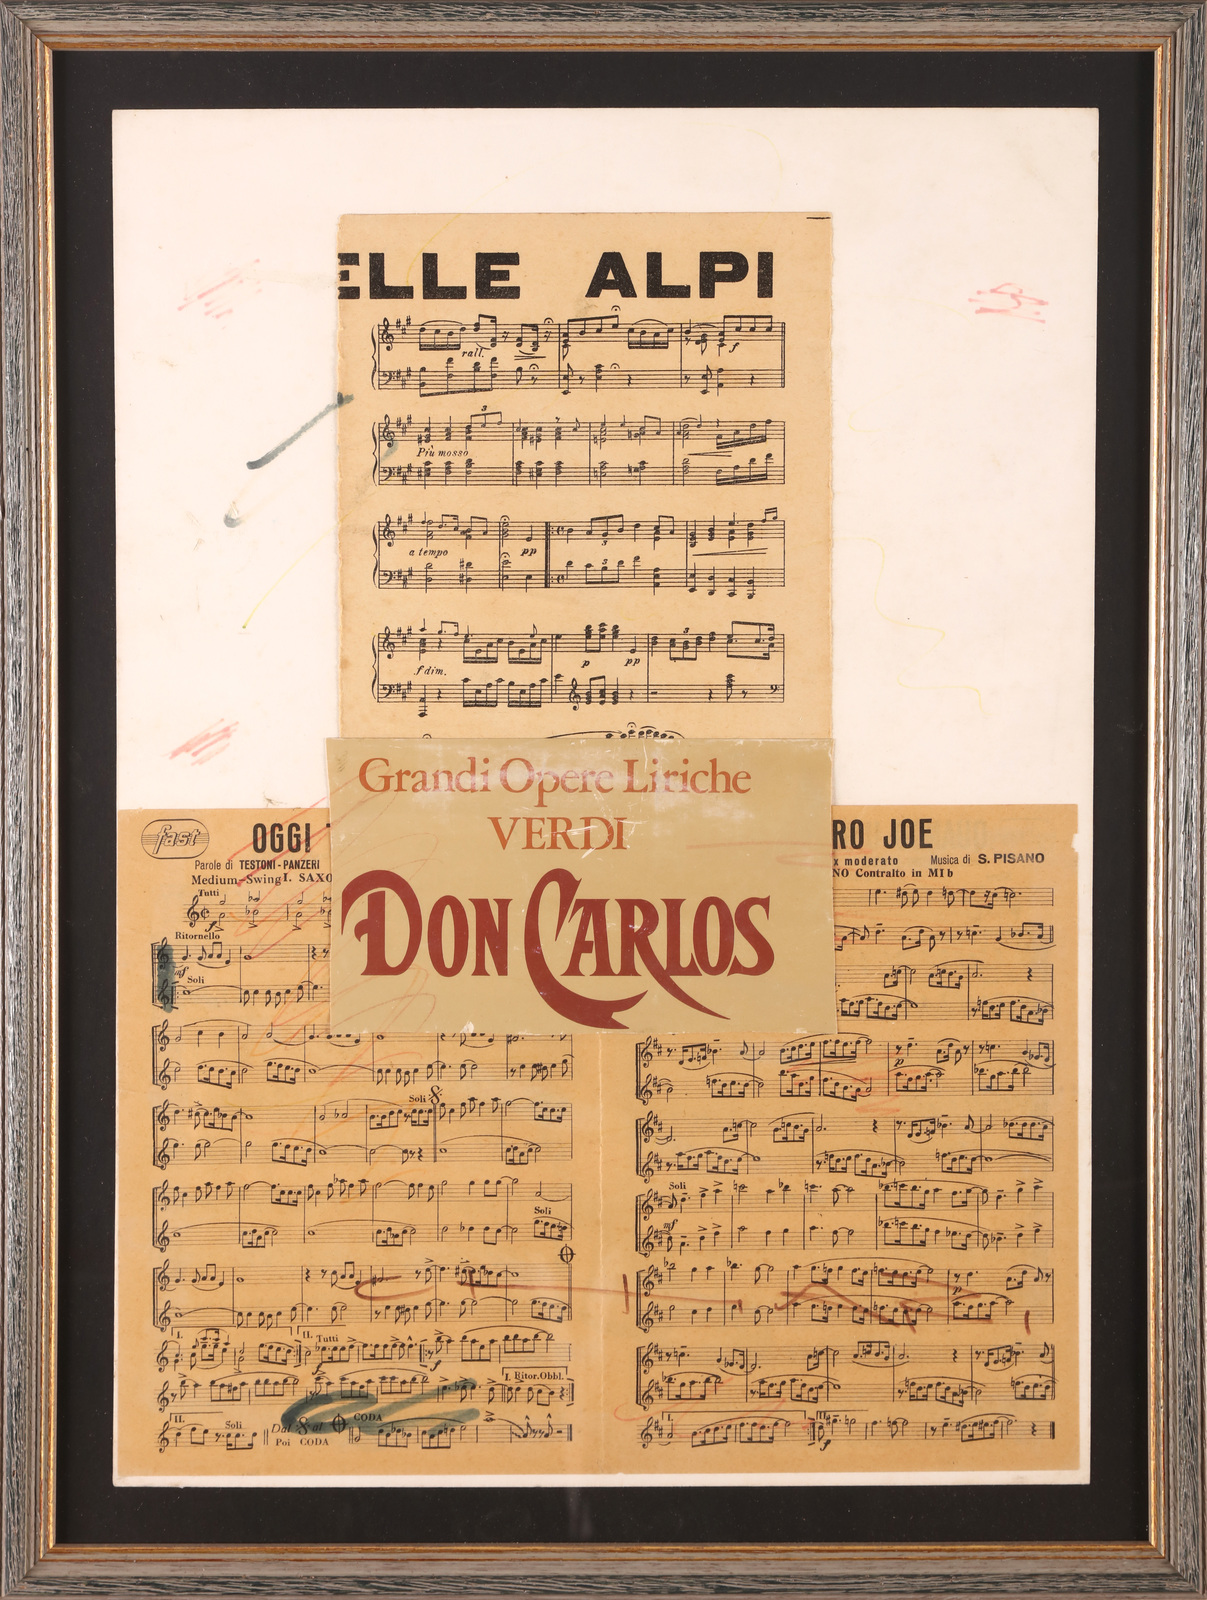 ELLE ALPI
rall.
f
3
Più mosso
a tempo
pp
3
3
f dim.
p
pp
3
Grandi Opere Liriche
VERDI
DON CARLOS
fast
OGGI
Parole di TESTONI-PANZERI
Medium-Swing I. SAXO
Tutti
f
Ritornello
mf
Soli
Soli
Soli
I.
II. Tutti
f
f
I. Ritor. Obbl.
II.
Soli
Dal % al
CODA
Poi CODA
RO JOE
x moderato Musica di S. PISANO
NO Contralto in MI b
p
Soli
mf
p
I.
II.
f